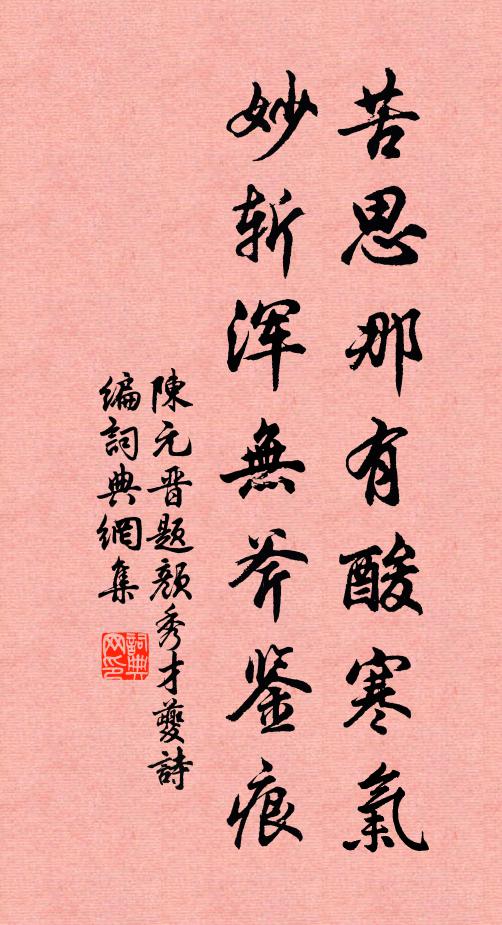 苦思那有酸寒氣
妙斬渾無斧鑒痕
陳元晉題顏秀才夔詩
編詞典網集
詞典網印